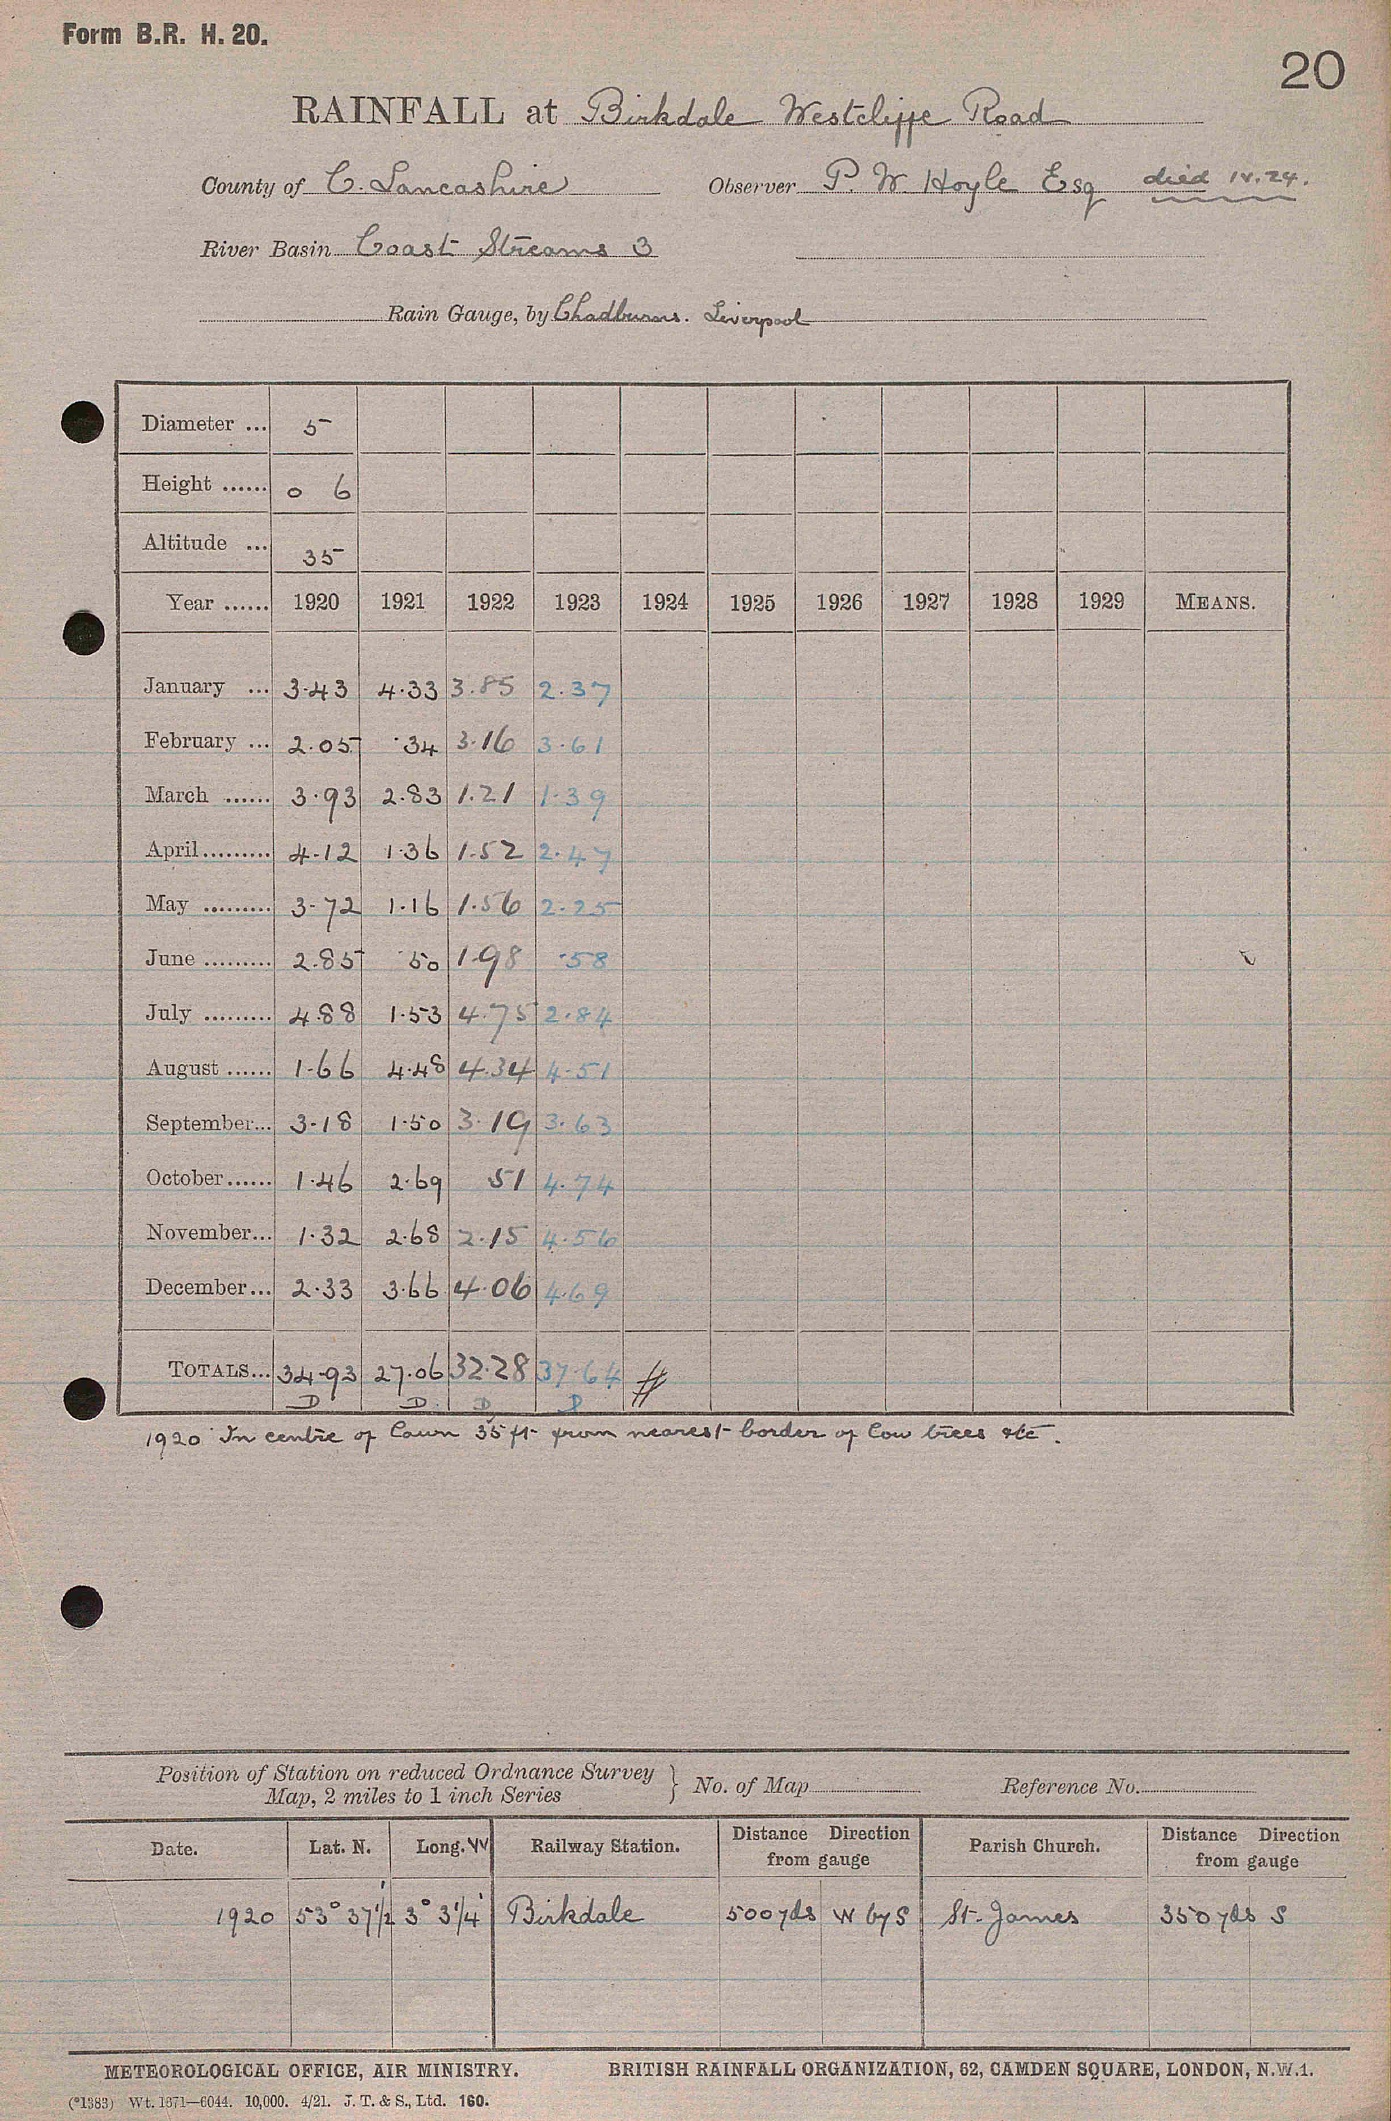 Form B.R. H. 20.
20
RAINFALL at Birkdale Westcliffe Road
County of C. Lancashire Observer P. W. Hoyle Esq died IV.24.
River Basin Coast Streams 3
Rain Gauge, by Chadburns. Liverpool
Diameter ... 5
Height ...... 0 6
Altitude ... 35
Year ...... 1920 1921 1922 1923 1924 1925 1926 1927 1928 1929 MEANS.
January ... 3.43 4.33 3.85 2.37
February ... 2.05 .34 3.16 3.61
March ...... 3.93 2.83 1.21 1.39
April ......... 4.12 1.36 1.52 2.47
May ......... 3.72 1.16 1.56 2.25
June ......... 2.85 .50 1.98 .58
July ......... 4.88 1.53 4.75 2.84
August ...... 1.66 4.48 4.34 4.51
September... 3.18 1.50 3.19 3.63
October...... 1.46 2.69 51 4.74
November... 1.32 2.68 2.15 4.56
December... 2.33 3.66 4.06 4.69
TOTALS... 34.93 27.06 32.28 37.64 #
D D. D D
1920 In centre of lawn 35 ft from nearest border of low trees etc.
Position of Station on reduced Ordnance Survey } No. of Map Reference No.
Map, 2 miles to 1 inch Series
Date. Lat. N. Long. W Railway Station. Distance Direction Parish Church. Distance Direction
from gauge from gauge
1920 53° 37½' 3° 3¼' Birkdale 500 yds W by S St. James 350 yds S
METEOROLOGICAL OFFICE, AIR MINISTRY. BRITISH RAINFALL ORGANIZATION, 62, CAMDEN SQUARE, LONDON, N.W.1.
(*1383) Wt. 1371—6044. 10,000. 4/21. J. T. & S., Ltd. 160.